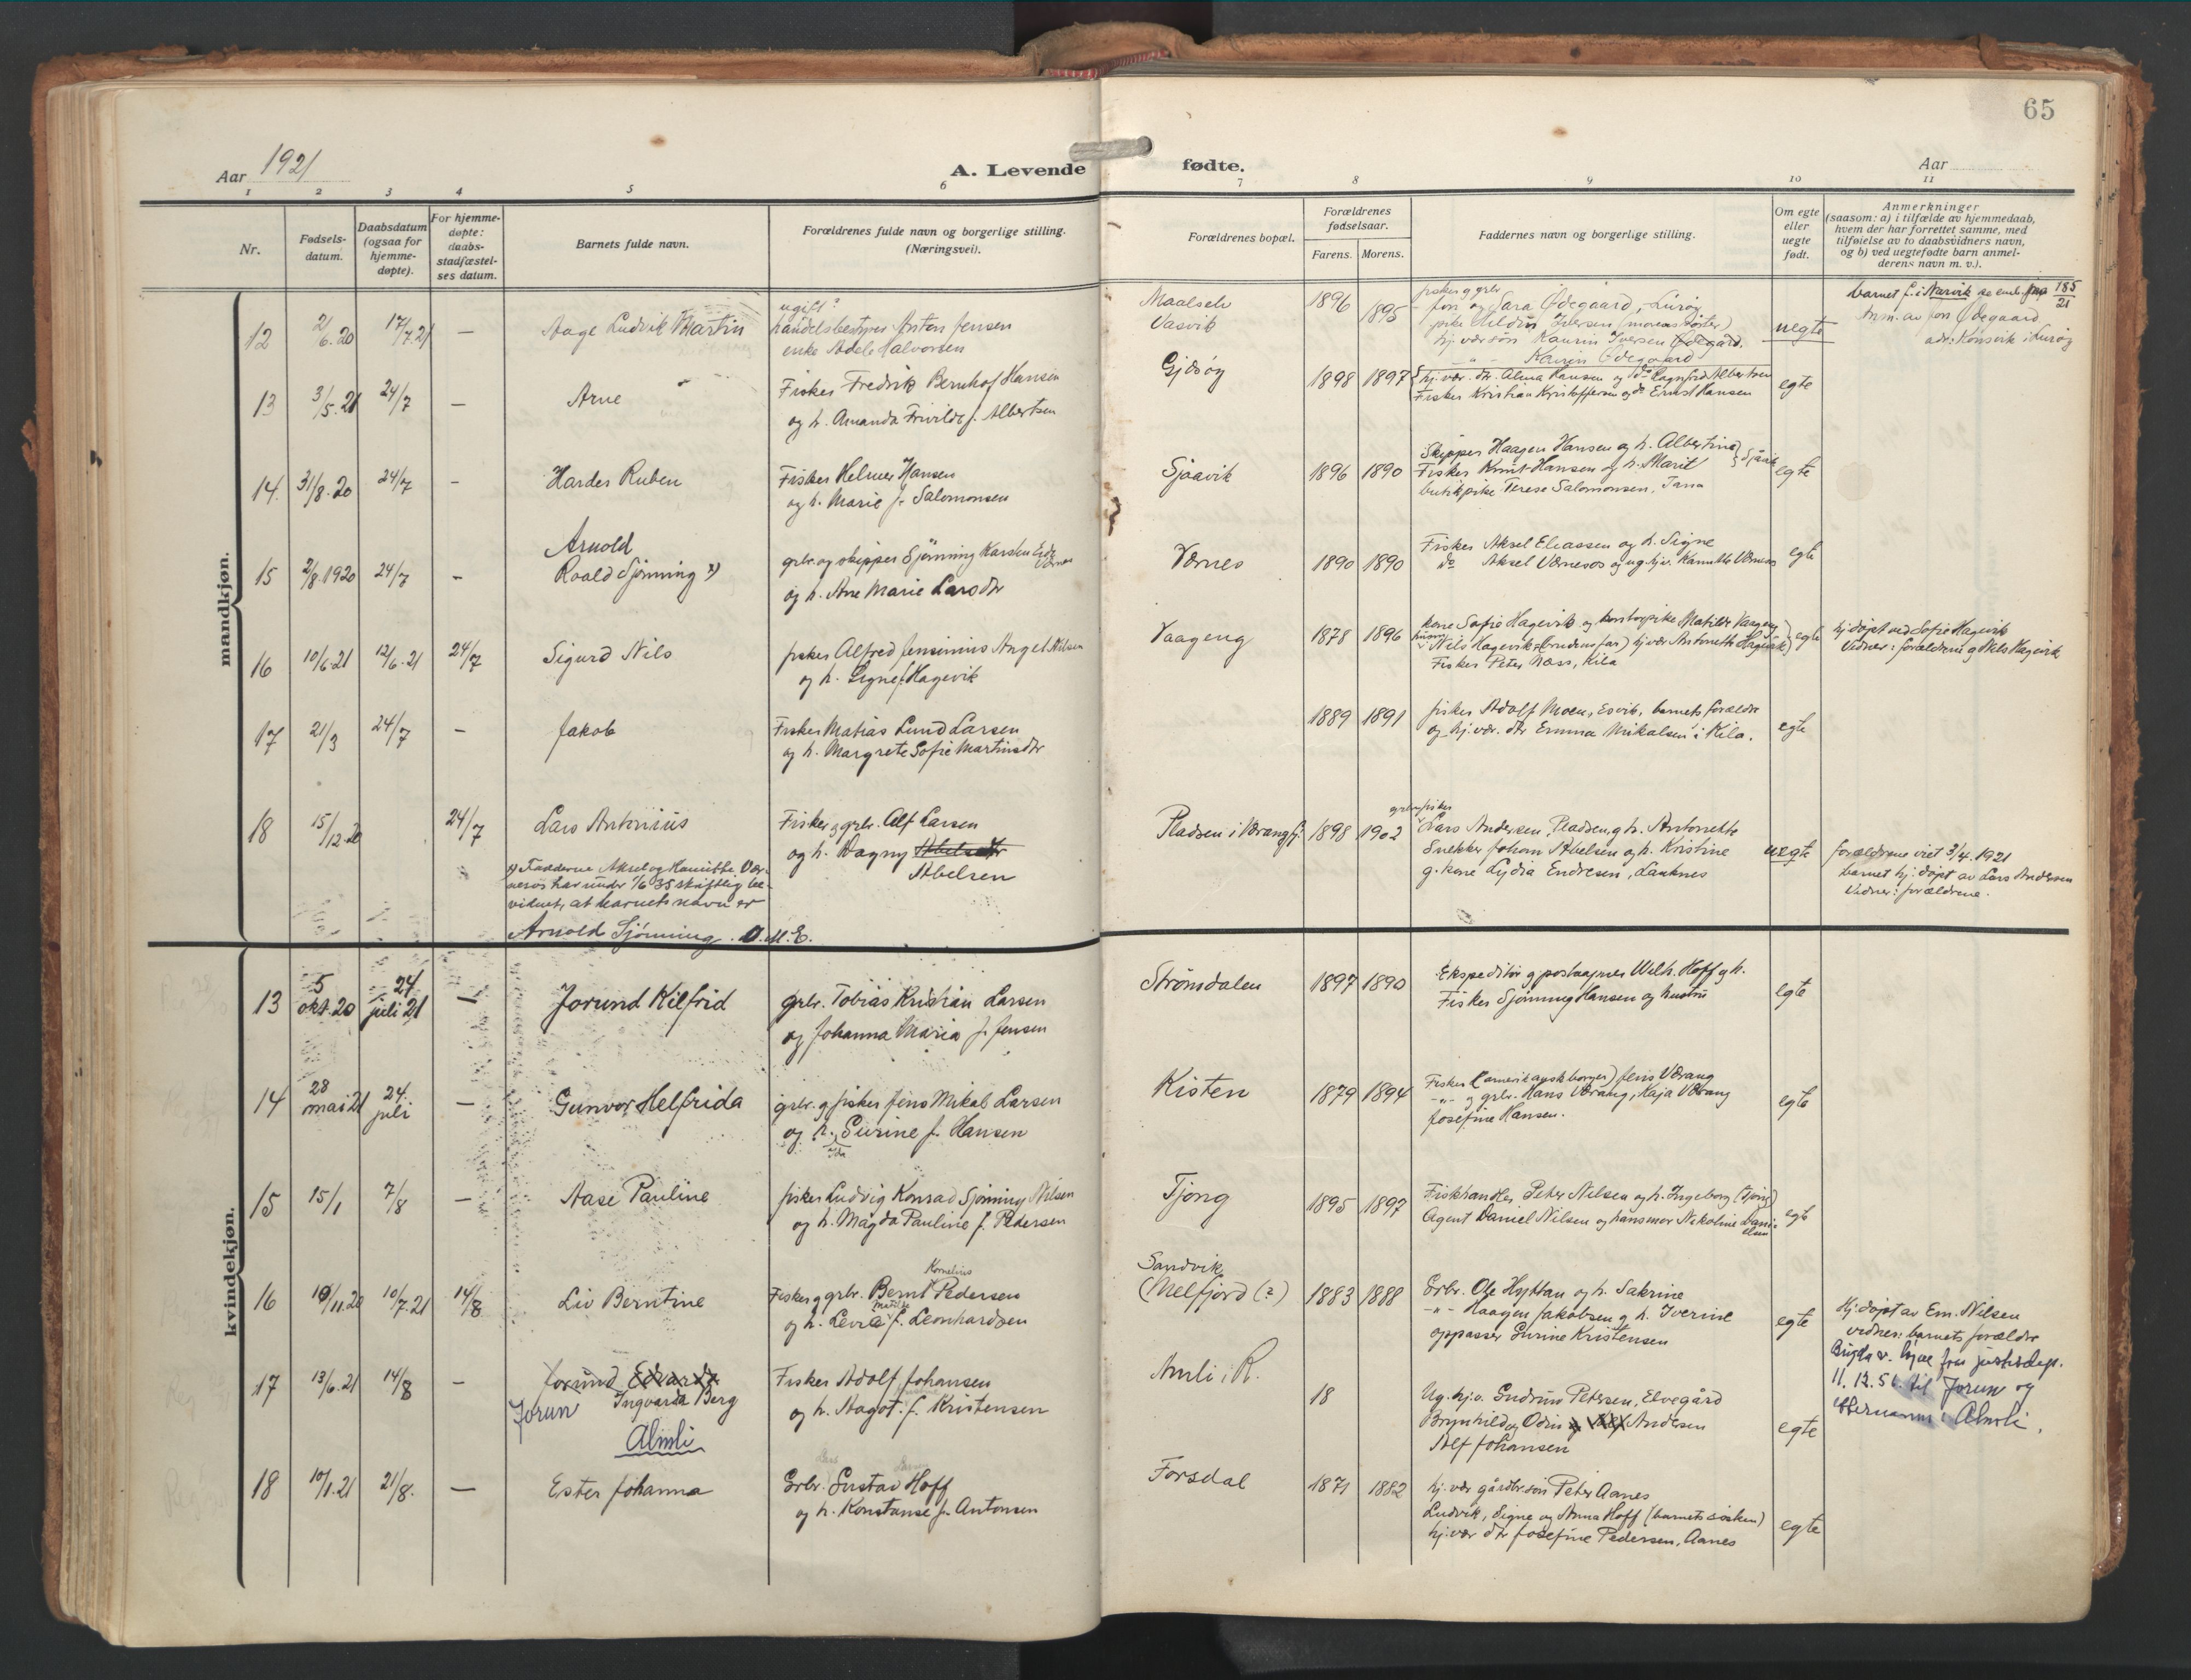 65
Aar 1921
A. Levende
fødte.
Aar
1 2 3 4 5 6 7 8 9 10 11
Nr.
Fødsels-
datum.
Daabsdatum
(ogsaa for
hjemme-
døpte).
For hjemme-
døpte:
daabs-
stadfæstel-
ses datum.
Barnets fulde navn.
Forældrenes fulde navn og borgerlige stilling.
(Næringsvei).
Forældrenes bopæl.
Forældrenes
fødselsaar.
Farens. Morens.
Faddernes navn og borgerlige stilling.
Om egte
eller
uegte
født.
Anmerkninger
(saasom: a) i tilfælde av hjemmedaab,
hvem der har forrettet samme, med
tilføielse av to daabsvidners navn,
og b) ved uegtefødte barn anmel-
derens navn m. v.).
mandkjøn.
12 2/6.20 17/7.21 — Aage Ludvik Martin
ugift?
handelsbestyrer Anton Jensen
enke Adele Halvorsen
Maalselv
Vasvik
1896 1895
fisker g grbr
Jon og Sara Ødegaard, Lurøy
pike Hildur Iversen (morens søster)
hj. vær. søn Kaurin Iversen Ødegård.
-"- Kaurin Ødegaard
uegte
barnet f. i Narvik 185/21
Anm. av Jon Ødegaard
adr: Konsvik i Lurøy
13 3/5.21 24/7 — Arne
Fisker Fredrik Bernhof Hansen
og h. Amanda Frivilde f. Albertsen
Gjesøy
1898 1897
hj. vær. dtr. Alma Hansen og do Ragnfrid Albertsen
Fisker Kristian Kristoffersen og do Ernst Hansen
egte
14. 31/8.20 24/7 - Hardes Ruben
Fisker Helmer Hansen
og h. Marie f. Salomonsen
Sjaavik
1896 1890
Skipper Haagen Hansen og h. Albertine
Fisker Knut Hansen og h. Marit
butikpike Terese Salomonsen, Tana
egte
15 2/8 1920 24/7 -
Arnold
Roald Sjønning x)
grbr. og skipper Sjønning Karsten
og h. Ane Marie Larsdtr
Værnes
1890 1890
Fisker Aksel Eliassen og h. Signe
do Aksel Værnesos og ug. hjv. Hanutte Værnesos
egte
16 10/6.21 12/6.21 24/7 Sigurd Nils
fisker Alfred Jensinius Angel Nilsen
og h. Signe f. Hagevik
Vaageng
1878 1896
kone Sofie Hagevik og kontorpike Matilde Vaageng
Nils Hagevik (brudens far) hj vær Antonette Hagevik
Fisker Peter Næss, Kila
egte
hj. døpt ved Sofie Hagevik
Vidner: forældrene g Nils Hagevik
17 21/3 24/7 — Jakob
Fisker Matias Lund Larsen
og h. Margrete Sofie Martinsdtr
1889 1891
fisker Adolf Moen, Esvik, barnets forældre
og hj. vær. dtr Emma Mikalsen i Kila.
egte
18 15/12.20 24/7 Lars Antonius
Fisker g grbr. Alf Larsen
og h. Dagny Abelsdtr
Abelsen
Pladsen i Værangfj.
1898 1902
grbr g fisker
Lars Andersen, Pladsen, g h. Antonette
Snekker Johan Abelsen og h. Kristine
g. kone Lydia Endresen, Lauknes
uegte
forældrene viet 3/4. 1921
barnet hj. døpt av Lars Andersen
Vidner: forældrene.
x) Fadderne Aksel og Hanutte Vær-
nesos har under 1/6 35 skriftlig be-
vidnet, at barnets navn er
Arnold Sjønning. O.M.E.
kvindekjøn.
13 5 okt. 20 24 juli 21 — Jorund Kilfrid
grbr. Tobias Kristian Larsen
og Johanna Maria f. Jensen
Strømdalen
1897 1890
Ekspeditør g postaapner Wilh. Hoff g h.
Fisker Sjønning Hansen og hustru
egte
14 28 mai 21 24. juli — Gunvor Helfrida
grbr. g fisker Jens Mikal Larsen
og h. Surine f. Hansen
Kisten
1879 1894
Fisker (amerikansk borger) Jens Værang
-"- g grbr. Hans Værang, Kaja Værang
Josefine Hansen.
egte
15 15/1 7/8 — Aase Pauline
fisker Ludvig Konrad Sjønning Nilsen
og h. Magda Pauline f. Pedersen
Tjong
1895 1897
Fiskhandler Peter Nilsen og h. Ingeborg (Tjong)
Agent Daniel Nilsen og hans mor Nekoline Dani-
elsen
egte
16 10/11.20 10/7.21 14/8 Liv Berntine
Kornelius
Fisker g grbr. Bernt Pedersen
Matilde
og h. Levra f. Leonhardsen
Sandvik
(Melfjord (?)
1883 1888
Grbr. Ole Hyttan og h. Sakrine
-"- Haagen Jakobsen g h. Iverine
oppasser Surine Kristensen
egte
Hj. døpt av Em. Nilsen
vidner: barnets forældre
17 13/6.21 14/8 —
Jorund Edvarda
Jorun Ingvarda Berg
Almli
Fisker Adolf Johansen
og h. Aagot f. Kristensen
Amli i R.
18
Ug. hj.v. Gudrun Petersen, Elvegård
Brynhild og Odin Andersen
Alf Johansen
egte
Bigda v. bijae fra justisdep.
11.12.51 til Jorun og
etternavn: Almli.
18 10/1.21 21/8. — Ester Johanna
Grbr. Gustav Hoff
og h. Konstanse f. Antonsen
Forsdal
1871 1882
hj. vær gårdbr. søn Peter Aanes
Ludvik, Signe og Anna Hoff (barnets søsken)
hj. vær dtr Josefine Pedersen, Aanes
egte